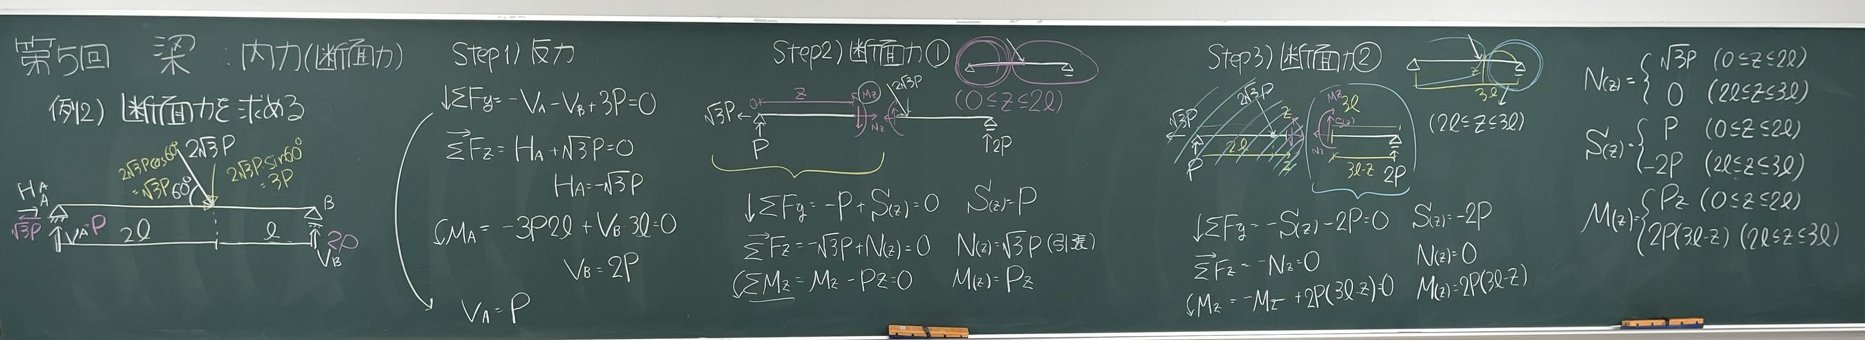 第5回 梁:内力(断面力)
例2) 断面力を求める
2√3Pcos60°
=√3P
60°
2√3P
2√3Psin60°
=3P
HA
A
√3P
VA=P
2l
l
B
2P
VB
Step1) 反力
↓ΣFy=-VA-VB+3P=0
ΣFz=HA+√3P=0
HA=-√3P
MA=-3P2l+VB·3l=0
VB=2P
VA=P
Step2) 断面力①
(0≤z≤2l)
√3P
0
z
Mz
Nz
2√3P
P
2P
↓ΣFy=-P+S(z)=0 S(z)=P
ΣFz=-√3P+N(z)=0 N(z)=√3P(引張)
ΣMz=Mz-Pz=0 M(z)=Pz
Step3) 断面力②
z
3l
(2l≤z≤3l)
√3P
2√3P
z
2l
P
Mz
3l
S(z)
Nz
3l-z
2P
↓ΣFy=-S(z)-2P=0 S(z)=-2P
ΣFz=-Nz=0 N(z)=0
Mz=-Mz+2P(3l-z)=0 M(z)=2P(3l-z)
N(z)={√3P (0≤z≤2l)
0 (2l≤z≤3l)
S(z)={P (0≤z≤2l)
-2P (2l≤z≤3l)
M(z)={Pz (0≤z≤2l)
2P(3l-z) (2l≤z≤3l)